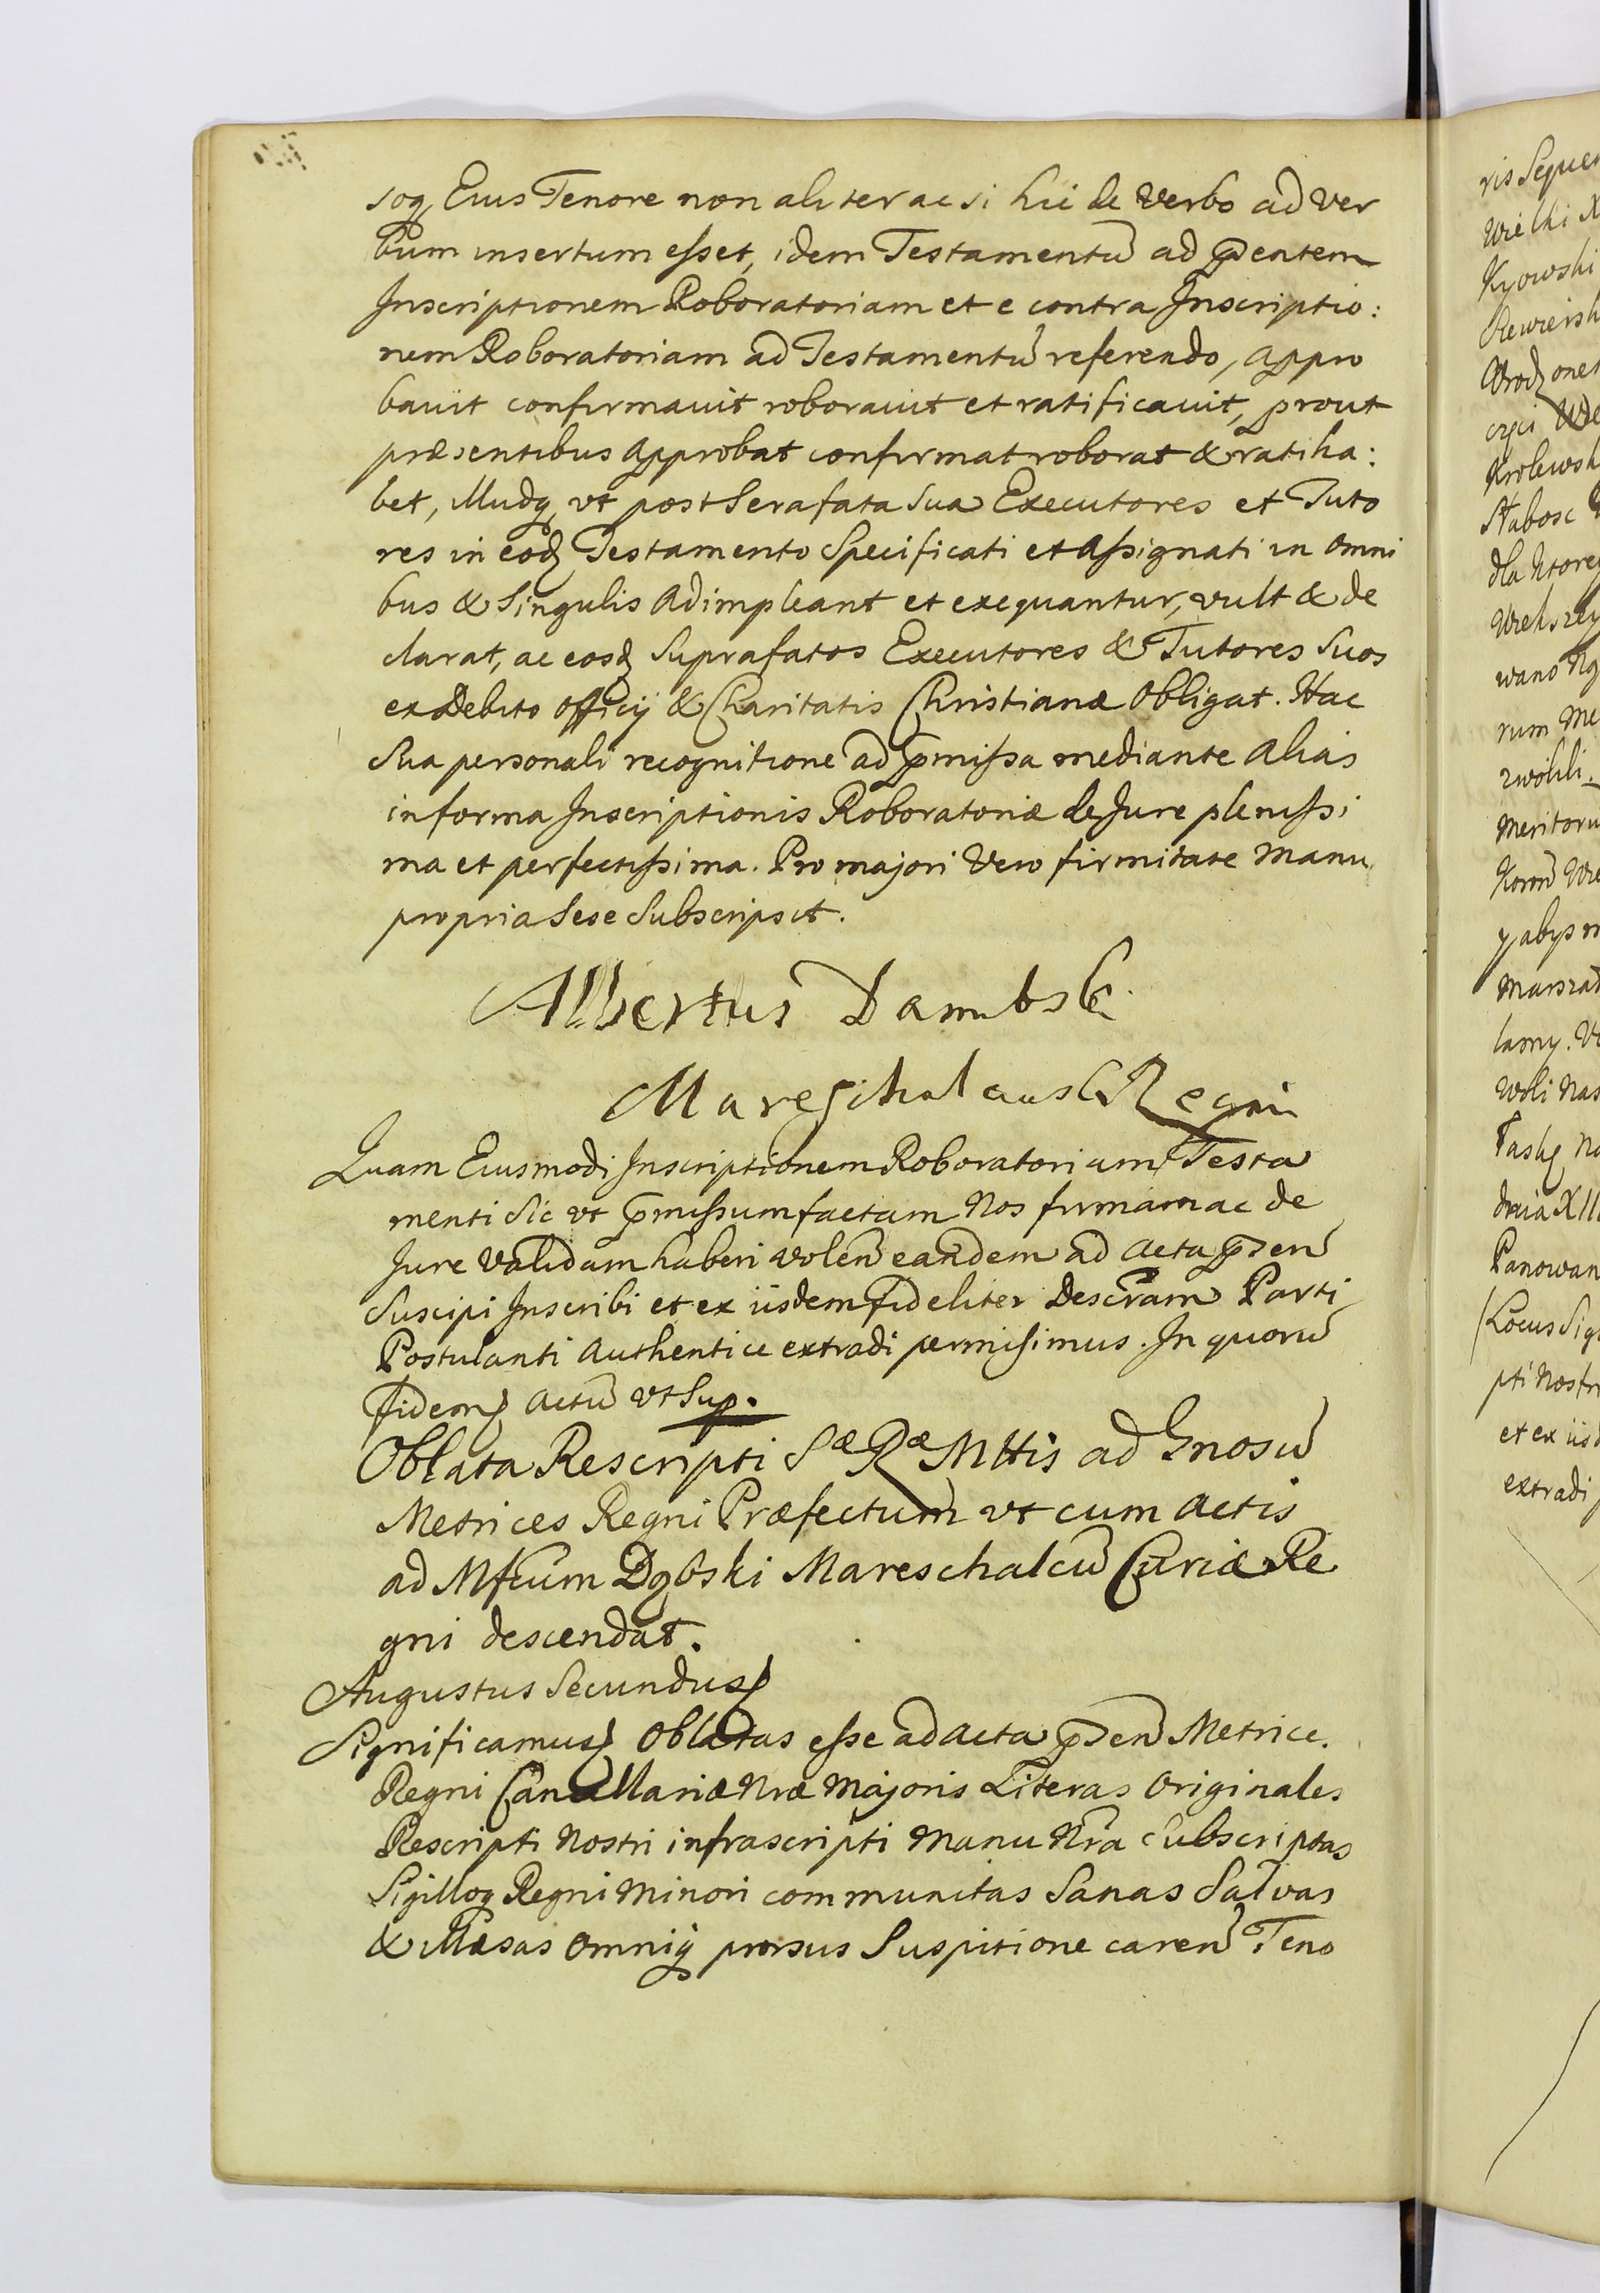 soq, Eius Tenore non aliter ac si hic de Verbo ad Ver
bum insertum esset, idem Testamentū ad pñdentem
Inscriptionem Roboratoriam et e contra Inscriptio:
nem Roboratoriam ad Testamentū referendo, appro
bavit confirmavit roboravit et ratificavit, prout
præsentibus approbat confirmat roborat & ratiha:
bet, Illudq, vt post Sera fata sua Executores et Tuto
res in eodȝ Testamento Specificati et assignati in omni
bus & Singulis adimpleant et exequantur, vult & de
clarat, ac eosdȝ Suprafatos Executores & Tutores Suos
ex Debito officij & Charitatis Christianæ Obligat. Hac
Sua personali recognitione ad p̃missa mediante alias
in forma Inscriptionis Roboratoriæ de Jure plenissi
ma et perfectissima. Pro majori Vero firmitate manu
propria Sese Subscripsit.
Albertus Dambski
Mareschalcus C. Regni
Quam Eiusmodi Inscriptionem Roboratoriam Testa
menti Sic vt p̃missum factam Nos firmam ac de
Jure Validam haberi volen̄ eandem ad Acta p̃sen̄
Suscipi Inscribi et ex iisdem fideliter Descr̃am Parti
Postulanti authentice extradi permisimus. In quorū
fidem Actū vt Sup.
Oblata Rescripti Sæ Ræ Mttis ad Gnosū
Metrices Regni Præfectum vt cum actis
ad Mfcum Dąbski Mareschalcū Curiæ Re
gni descendat.
Augustus Secundus
Significamus Oblatas esse ad Acta p̃sen̄ Metrice.
Regni Cancellariæ Nræ Majoris Literas Originales
Rescripti Nostri infrascripti manu Nr̃a Subscriptas
Sigilloq Regni Minori communitas Sanas Salvas
& Illæsas omniq̃ prorsus Suspitione caren̄ Teno
ris Seque
Wielki X
Kyowski